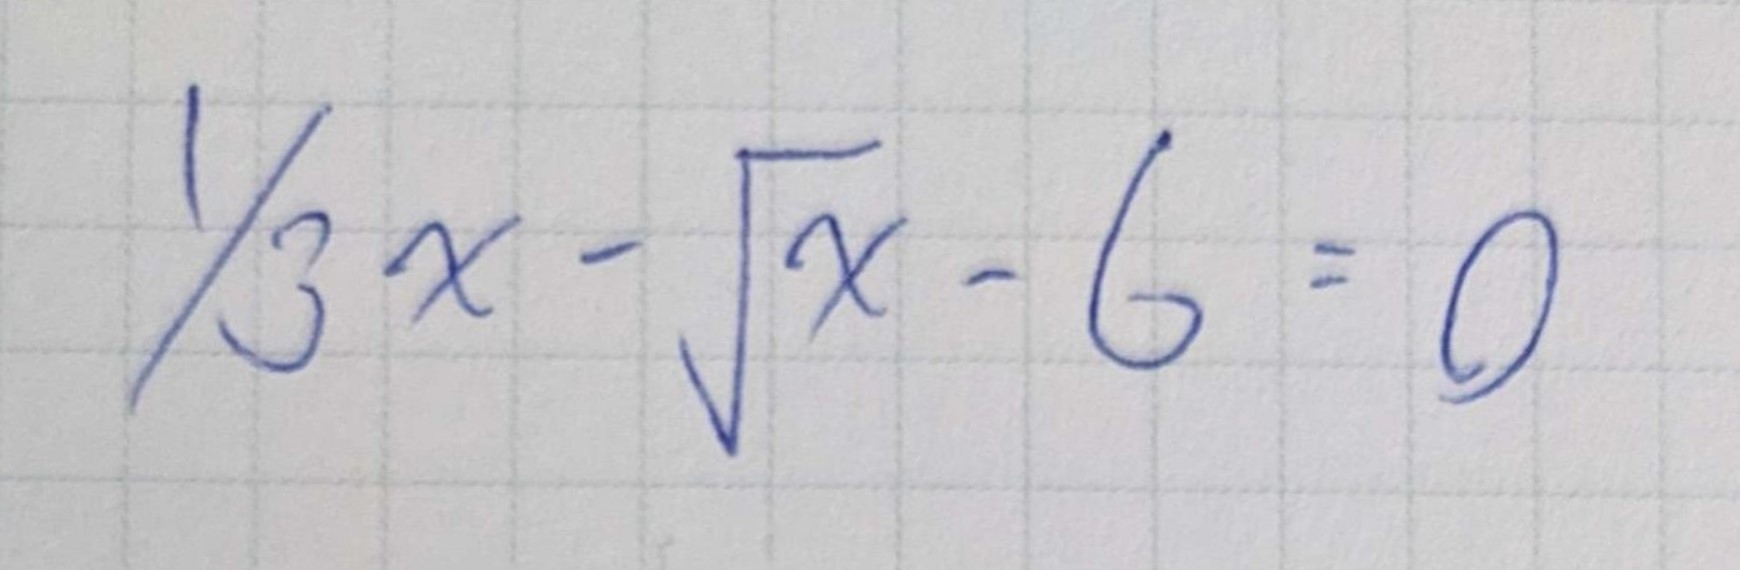 1/3x - √x - 6 = 0